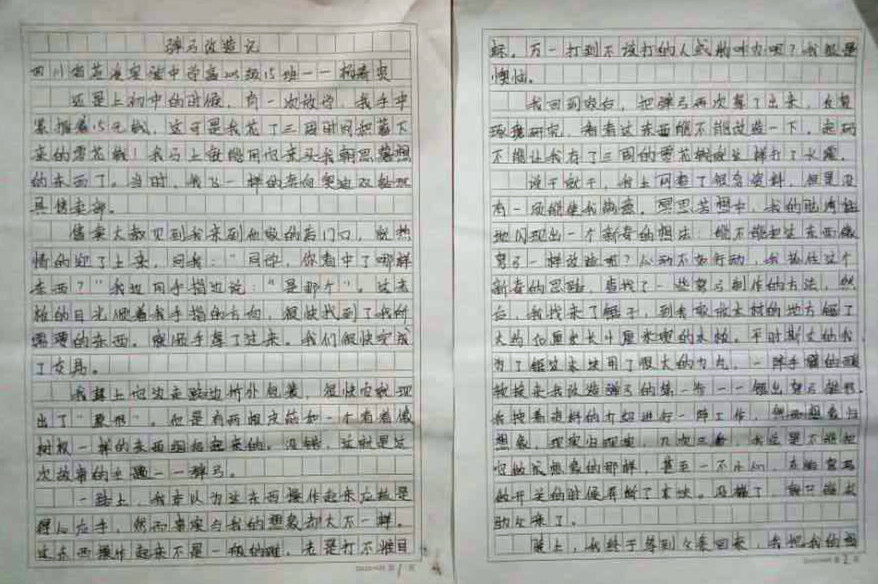 弹弓改造记
四川省 实验中学高 级15班——杨
还是上初中的时候，有一次放学，我手中
紧握着15元钱，这可是我花了三周时间把省下
来的零花钱！我马上就能用它来买我朝思暮想
的东西了。当时，我飞一样的奔向 玩
具售卖部。
售卖大叔见到我来到他家的店门口，就热
情的迎了上来，问我：“同学，你看中了哪样
东西？”我边用手指边说：“是那个”。这大
叔的目光顺着我手指的方向，很快找到了我所
需要的东西，顺手拿了过来。我们很快完成
了交易。
我马上边走路边拆外包装，很快它就现
出了“原形”。他是有两根皮筋和一个看着像
树杈一样的东西组起来的。没错，这就是这
次故事的主题——弹弓。
一路上，我本以为这东西操作起来应该是
得心应手，然而事实与我的想象却大不一样。
这东西操作起来不是一般的难，老是打不准目
标，万一打到不该打的人或 呢？我很是
懊恼。
我回到家后，把弹弓再次拿了出来，反复
琢磨研究，看看这东西能不能改造一下，起码
不能让我存了三周的零花钱就这样打了水漂。
说干就干，我上网查了很多资料，但是没
有一项能使我满意。冥思苦想中，我的脑海里
地闪现出一个新奇的想法：能不能把这东西像
弩弓一样改造呢？心动不如行动，我按照这个
新奇的思路，查找了一些弩弓制作的方法，然
后，我找来了锯子，到 放木材的地方锯了
大约 厘米长 厘米宽的木板。平时斯文的我
为了锯这木块用了很大的力气，一阵手臂的酸
软换来我改造弹弓的第一步——锯出弩弓雏形。
我按着资料的介绍进行一阵工作，然而想象归
想象，现实归现实，几次三番，我总是不能把
它做成想象的那样，甚至一不小心，在
做开关的时候弄断了木块。没辙了，
助父亲了。
晚上，我终于等到父亲回来，我把我的想